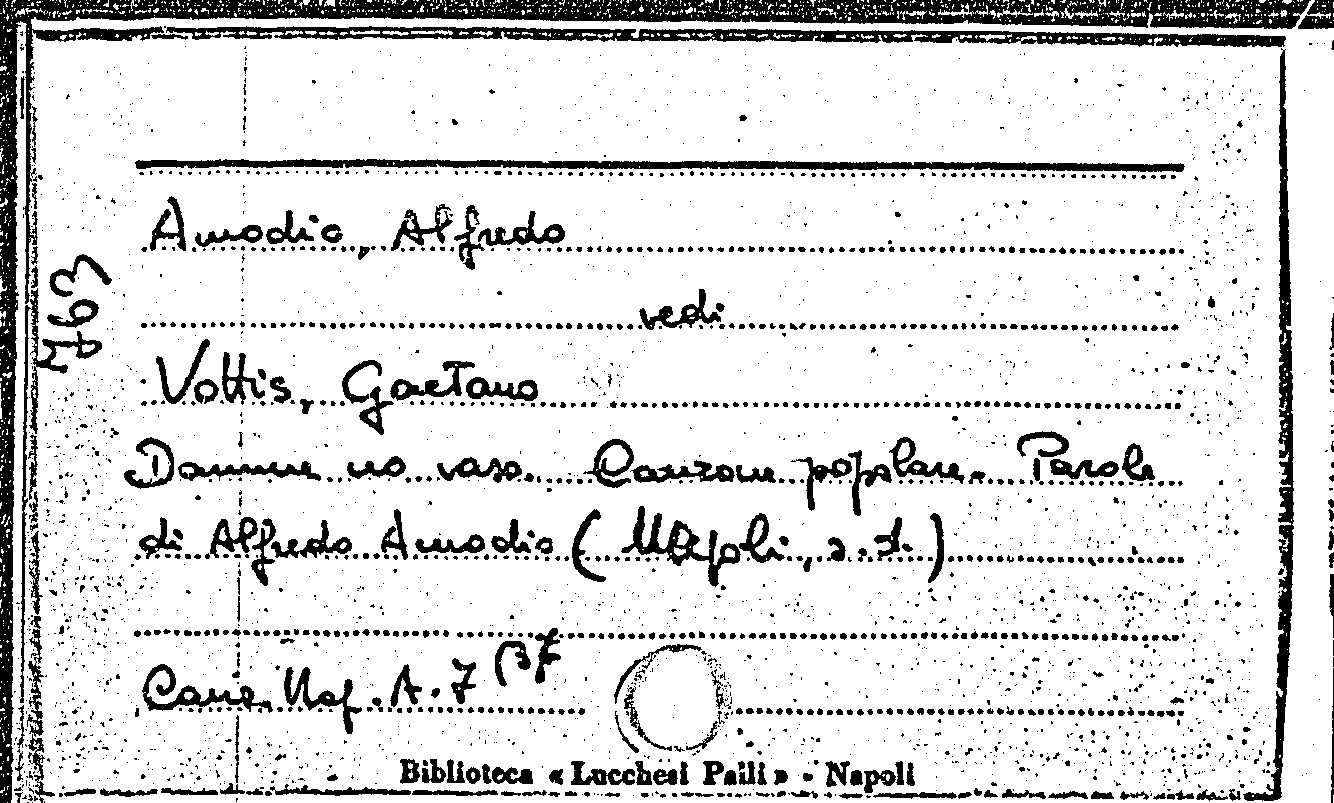 Amodio, Alfredo
vedi
Vottis, Gaetano
Damme no vaso. Canzone popolare. Parole
di Alfredo Amodio (Napoli, s.d.)
Canz. Nap. A. 7 (37
Biblioteca « Lucchesi Palli » - Napoli